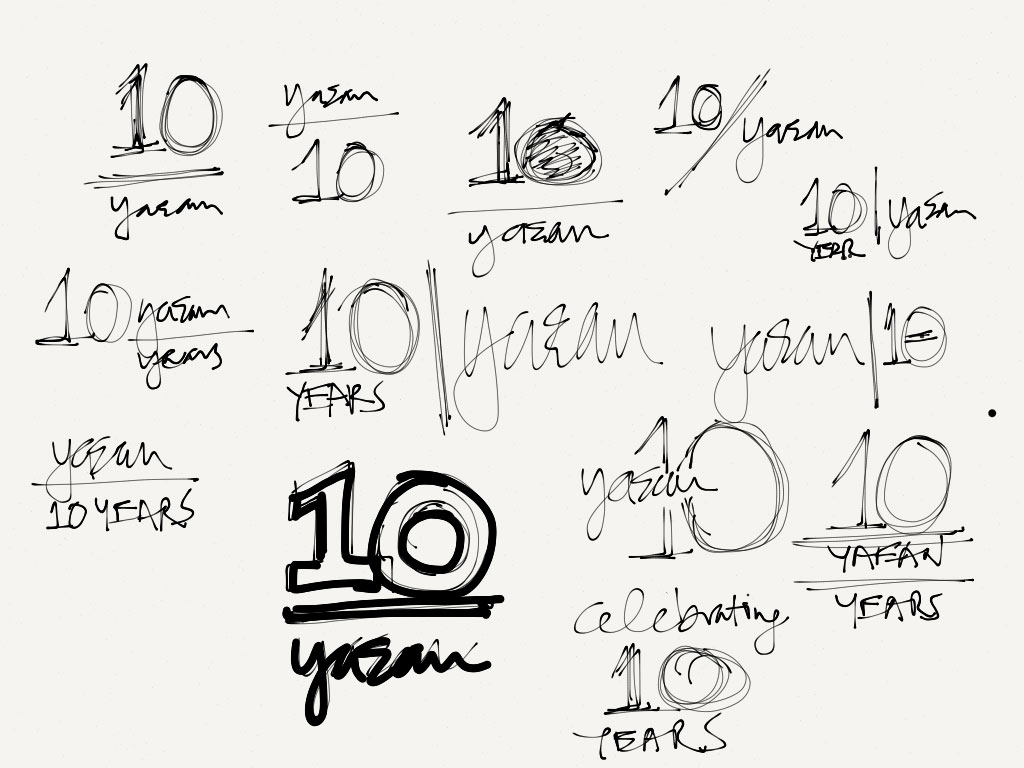 10
yaean
yaean
10
10
yaean
10 / yaean
10 | yaean
YEAR
10 yaean
years
10 | yaean
YEARS
yaean | 10
yaean
10 YEARS
10
yaean
10
yaean
10
YAEAN
YEARS
celebrating
10
YEARS